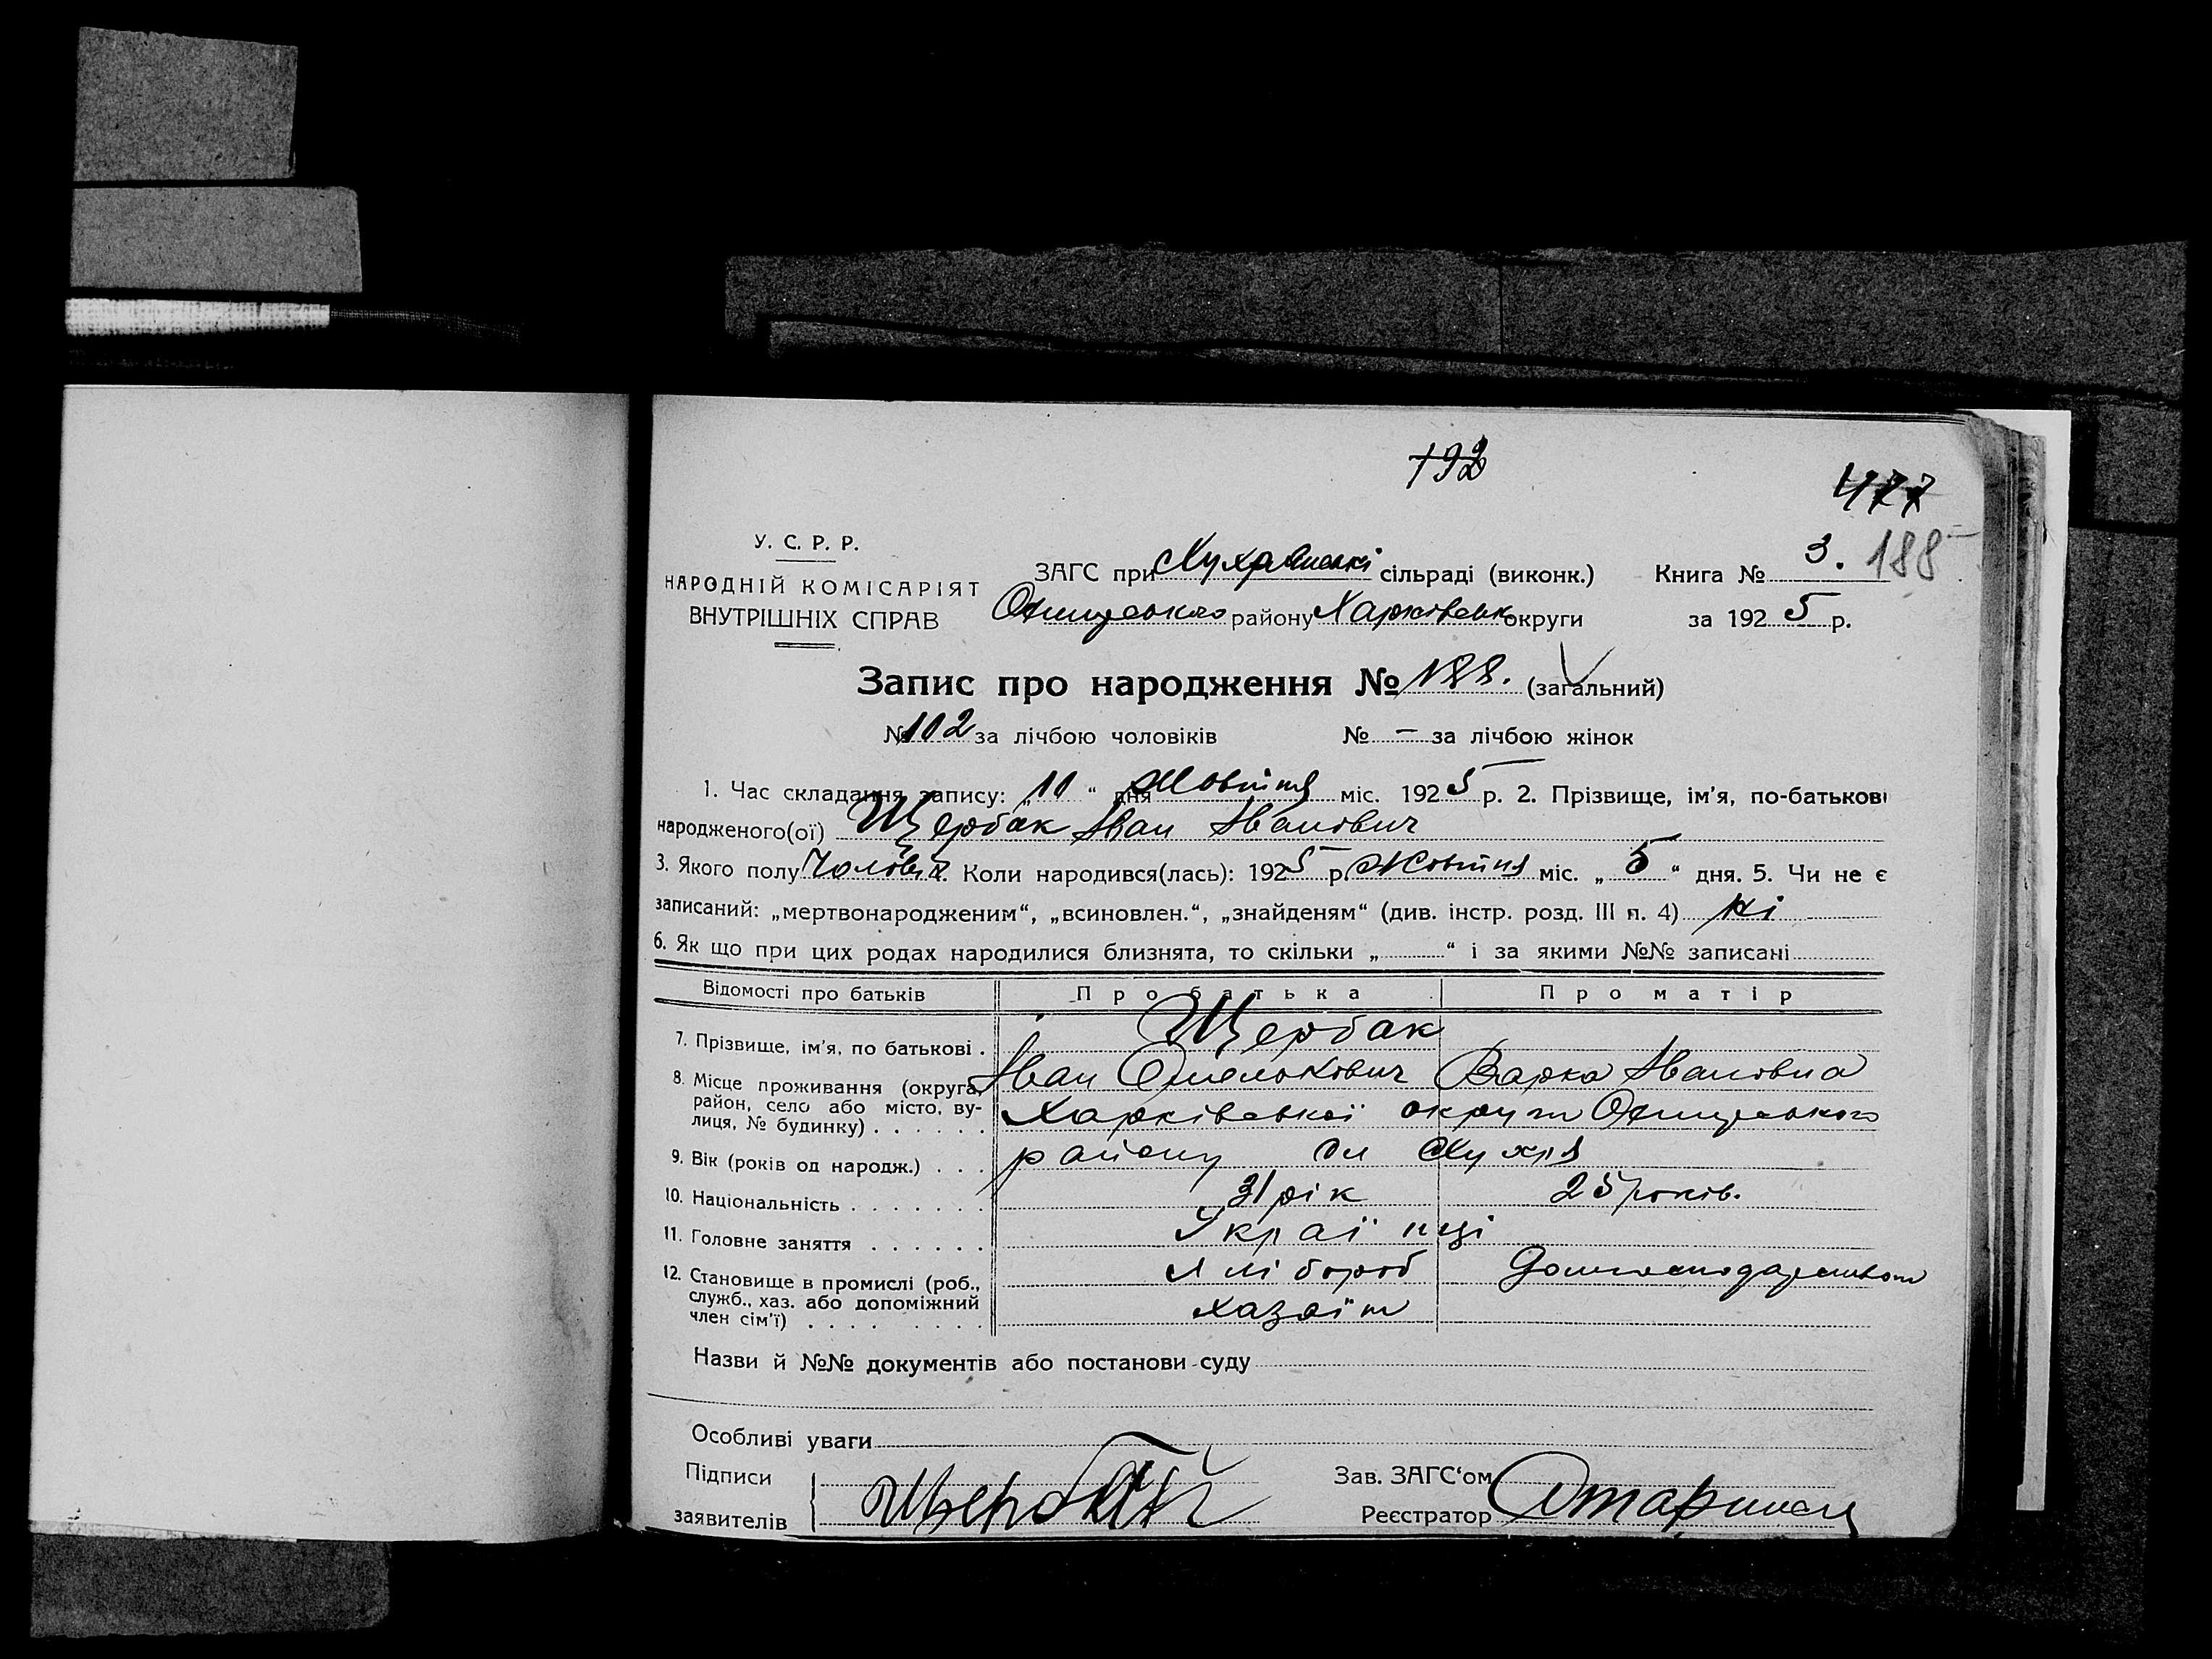 192
477
У. С. Р. Р.
НАРОДНІЙ КОМІСАРІЯТ
ВНУТРІШНІХ СПРАВ
ЗАГС при сільраді (виконк.) Книга № 3. 188
району Харківськ округи за 1925 р.
Запис про народження № 188. (загальний)
№ 102 за лічбою чоловіків № — за лічбою жінок
1. Час складання запису: „ 10 “ дня Жовтня міс. 1925 р. 2. Прізвище, ім'я, по-батькові
народженого(ої) Щербак Іван Іванович
3. Якого полу Чоловіч. Коли народився(лась): 1925 р. Жовтня міс. „ 5 “ дня. 5. Чи не є
записаний: „мертвонародженим“, „всиновлен.“, „знайденям“ (див. інстр. розд. III п. 4) Ні
6. Як що при цих родах народилися близнята, то скільки „ “ і за якими №№ записані
Відомості про батьків Про батька Про матір
7. Прізвище, ім'я, по батькові . Щербак
Іван Омелькович Варка Івановна
8. Місце проживання (округа, район, село або місто, вулиця, № будинку) . . . . . . Харківської округи
9. Вік (років од народж.) . . . району
10. Національність . . . . . . . 31 рік 25 років.
11. Головне заняття . . . . . . Українці
12. Становище в промислі (роб., служб., хаз. або допоміжний член сім'ї) . . . . . . . . . Хлібороб
хазяїн
Назви й №№ документів або постанови суду
Особливі уваги
Підписи Зав. ЗАГС‘ом
заявителів Щербак Реєстратор